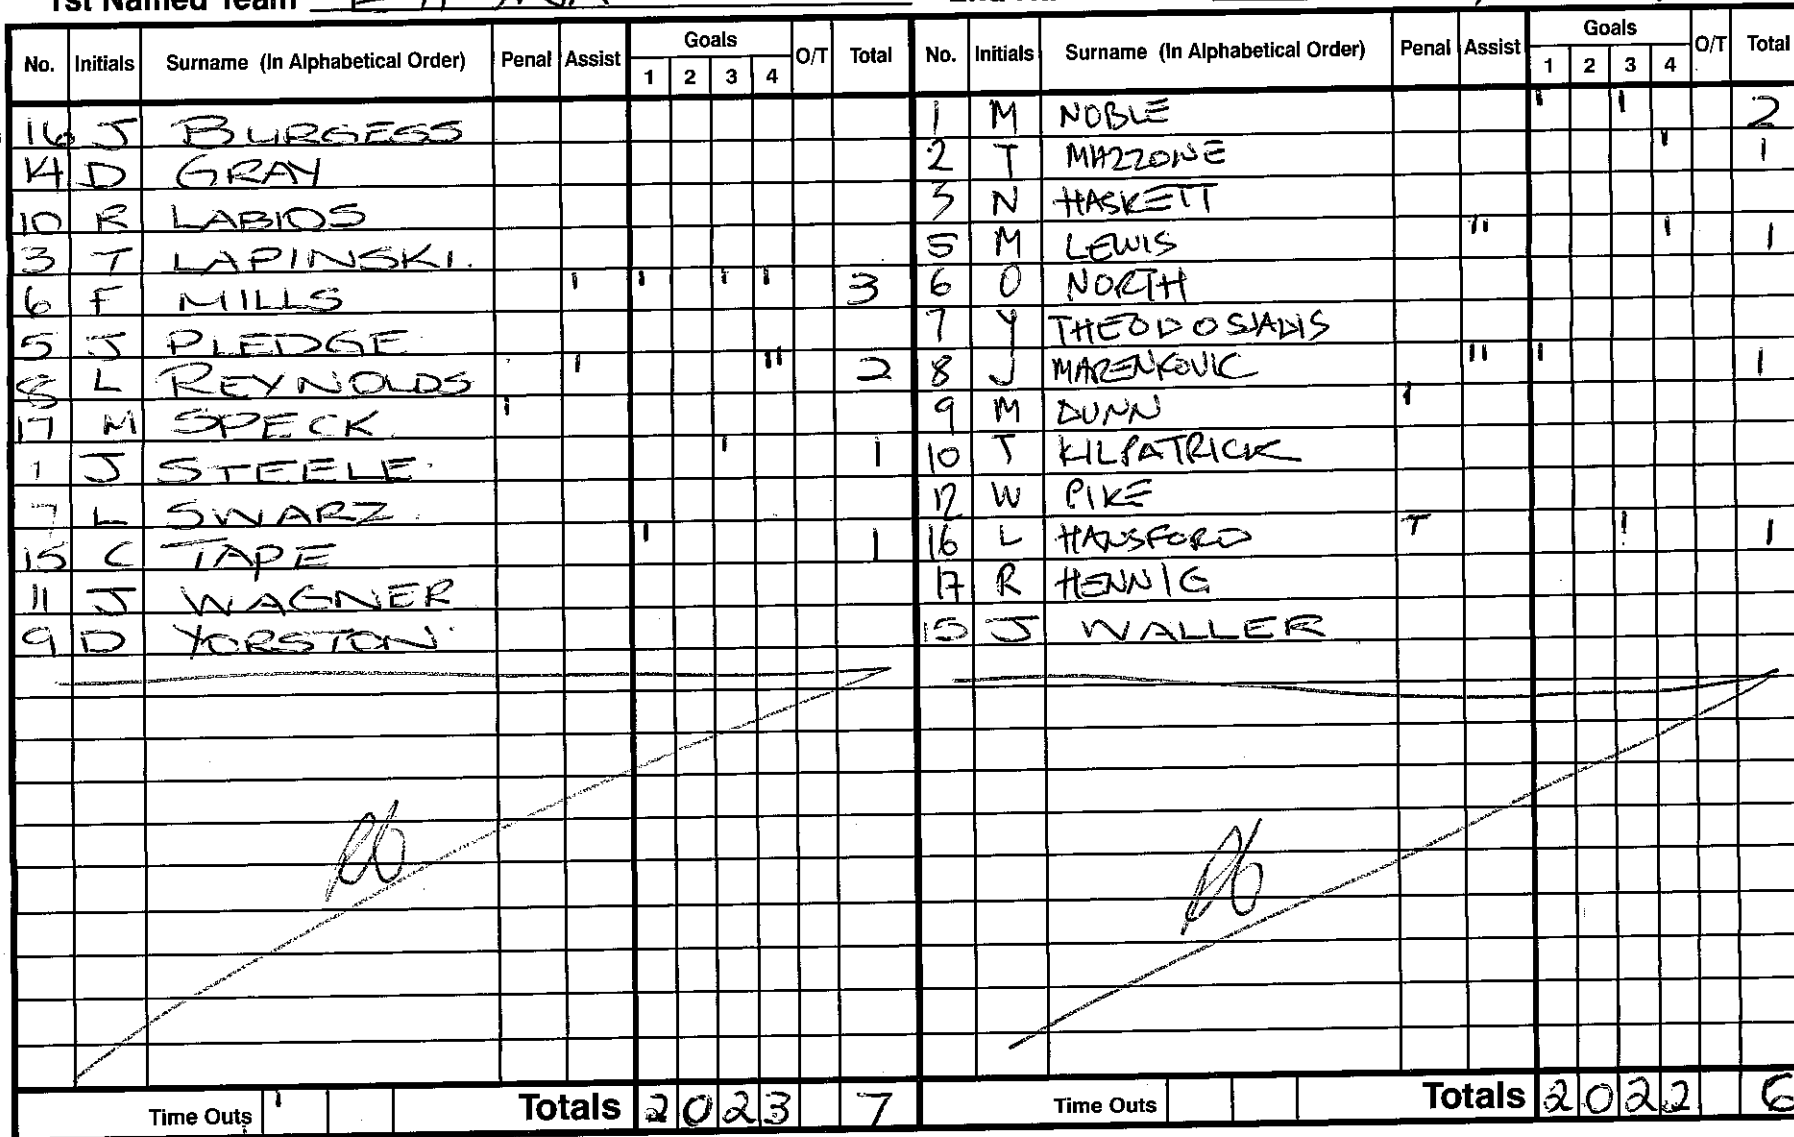 1st Named Team
No. Initials Surname (In Alphabetical Order) Penal Assist Goals 1 2 3 4 O/T Total
16 J BURGESS
14 D GRAY
10 R LABIOS
3 T LAPINSKI.
6 F MILLS ' ' ' ' 3
5 J PLEDGE
8 L REYNOLDS ' '' 2
17 M SPECK. '
1 J STEELE. ' 1
7 L SWARZ.
15 C TAPE ' 1
11 J WAGNER
9 D YORSTON
Time Outs ' Totals 2 0 2 3 7
No. Initials Surname (In Alphabetical Order) Penal Assist Goals 1 2 3 4 O/T Total
1 M NOBLE ' ' 2
2 T MAZZONE ' 1
3 N HASKETT
5 M LEWIS '' ' 1
6 O NORTH
7 Y THEODOSIADIS
8 J MARENKOVIC '' ' 1
9 M DUNN '
10 T KILPATRICK
12 W PIKE
16 L HANSFORD T ! 1
17 R HENNIG
15 J WALLER
Time Outs Totals 2 0 2 2 6